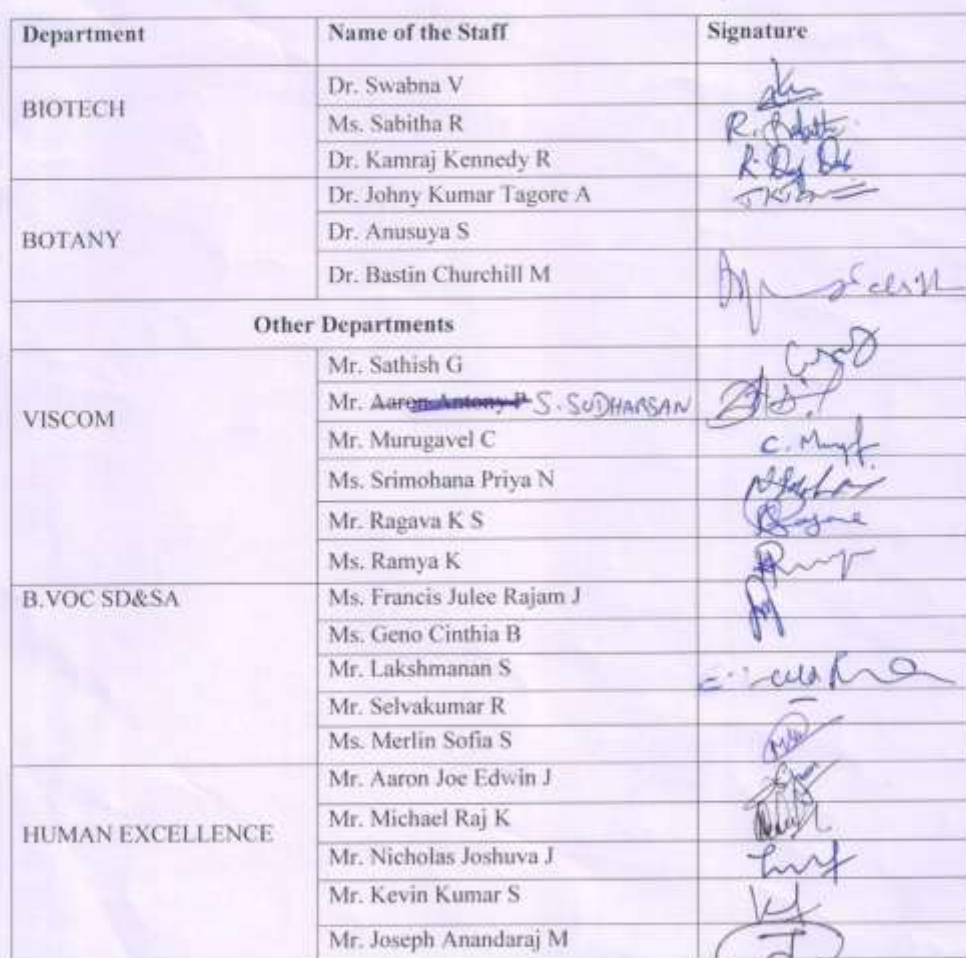 Department Name of the Staff Signature
BIOTECH
Dr. Swabna V
Ms. Sabitha R
Dr. Kamraj Kennedy R
BOTANY
Dr. Johny Kumar Tagore A
Dr. Anusuya S
Dr. Bastin Churchill M
Other Departments
VISCOM
Mr. Sathish G
Mr. Aaron Antony P S. SUDHARSAN
Mr. Murugavel C
Ms. Srimohana Priya N
Mr. Ragava K S
Ms. Ramya K
B.VOC SD&SA
Ms. Francis Julee Rajam J
Ms. Geno Cinthia B
Mr. Lakshmanan S
Mr. Selvakumar R
Ms. Merlin Sofia S
HUMAN EXCELLENCE
Mr. Aaron Joe Edwin J
Mr. Michael Raj K
Mr. Nicholas Joshuva J
Mr. Kevin Kumar S
Mr. Joseph Anandaraj M